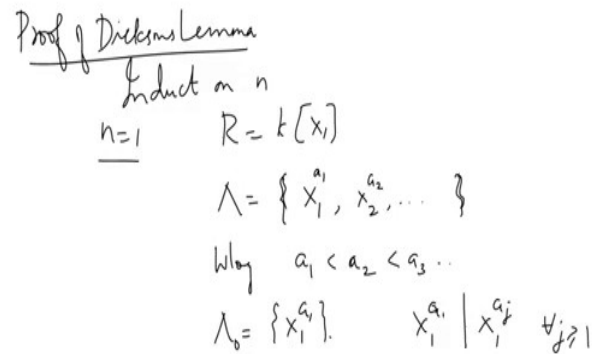 Proof of Dicksons Lemma
Induct on n
n=1 R = k[x₁]
Λ = { x₁^{a₁}, x₂^{a₂}, ... }
Wlog a₁ < a₂ < a₃ ..
Λ₀ = {x₁^{a₁}}. x₁^{a₁} | x₁^{a_j} ∀j≥1